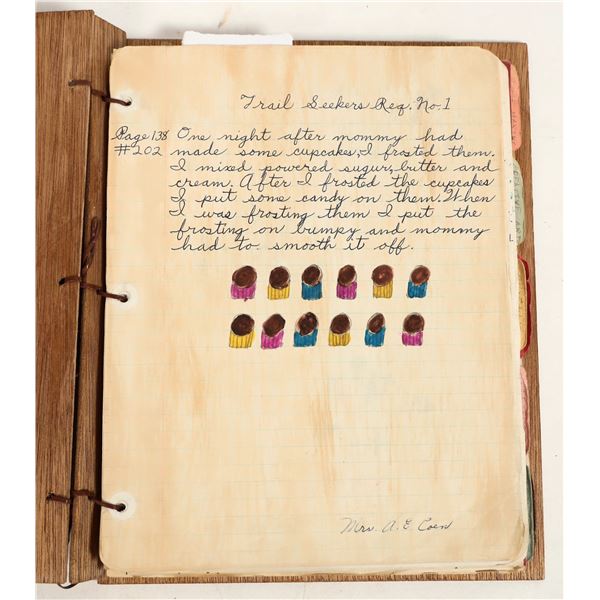 Trail Seekers Req. No. 1
Page 138 One night after mommy had
#202 made some cupcakes, I frosted them.
I mixed powered sugur, butter and
cream. After I frosted the cupcakes
I put some candy on them. When
I was frosting them I put the
frosting on bumpy and mommy
had to smooth it off.
Mrs. A. E Coen